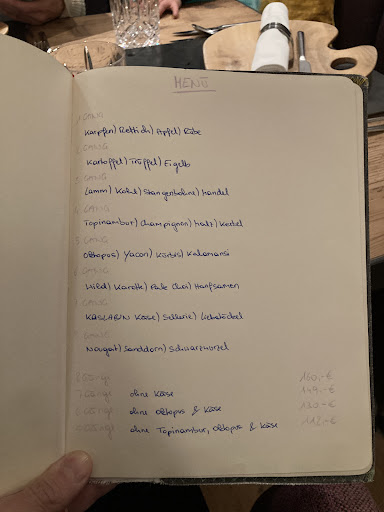 MENÜ
1. GANG
Karpfen) Rettich) Apfel) Rübe
2. GANG
Kartoffel) Trüffel) Eigelb
3. GANG
Lamm) Kohl) Stangenbohne)
4. GANG
Topinambur) Champignon)
5. GANG
Oktopus) Yacon) Kürbis) Kalamansi
GANG
Wild) Karotte) Pak Choi) Hanfsamen
GANG
KASLABN Käse) Sellerie) Liebstöckel
GANG
Nougat) Sanddorn) Schwarzwurzel
8 Gänge 160,-€
7 Gänge ohne Käse 149,-€
6 Gänge ohne Oktopus & Käse
Gänge ohne Topinambur, Oktopus & Käse